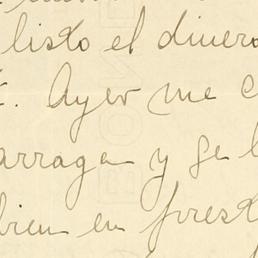 listo el dinero
. Ayer me c
arraga y se l
bien en prest